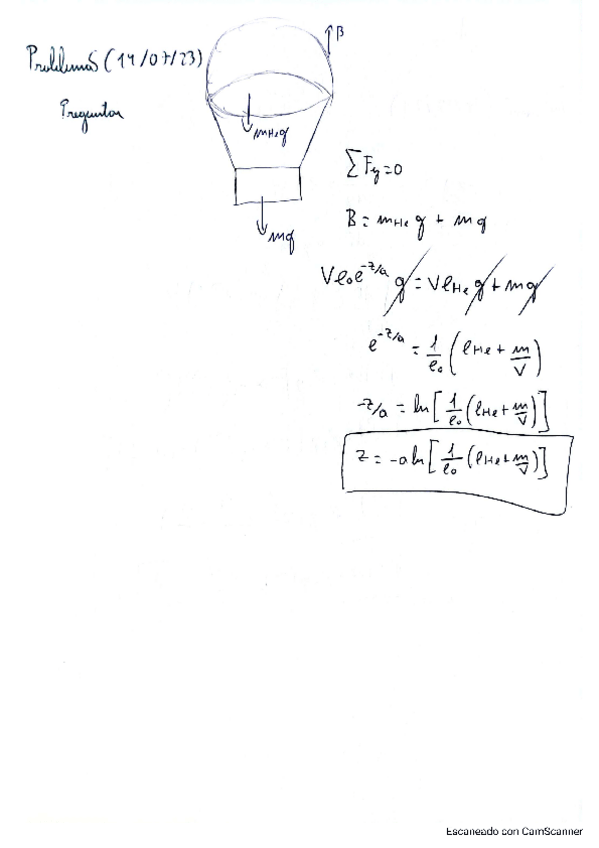 Problemas (14/07/23)
Preguntas
B
mHeg
mg
∑Fy=0
B = mHe g + mg
Vρ₀e^(-z/a) g = VρHe g + mg
e^(-z/a) = 1/ρ₀ (ρHe + m/V)
-z/a = ln[1/ρ₀ (ρHe + m/V)]
z = -a ln[1/ρ₀ (ρHe + m/V)]
Escaneado con CamScanner